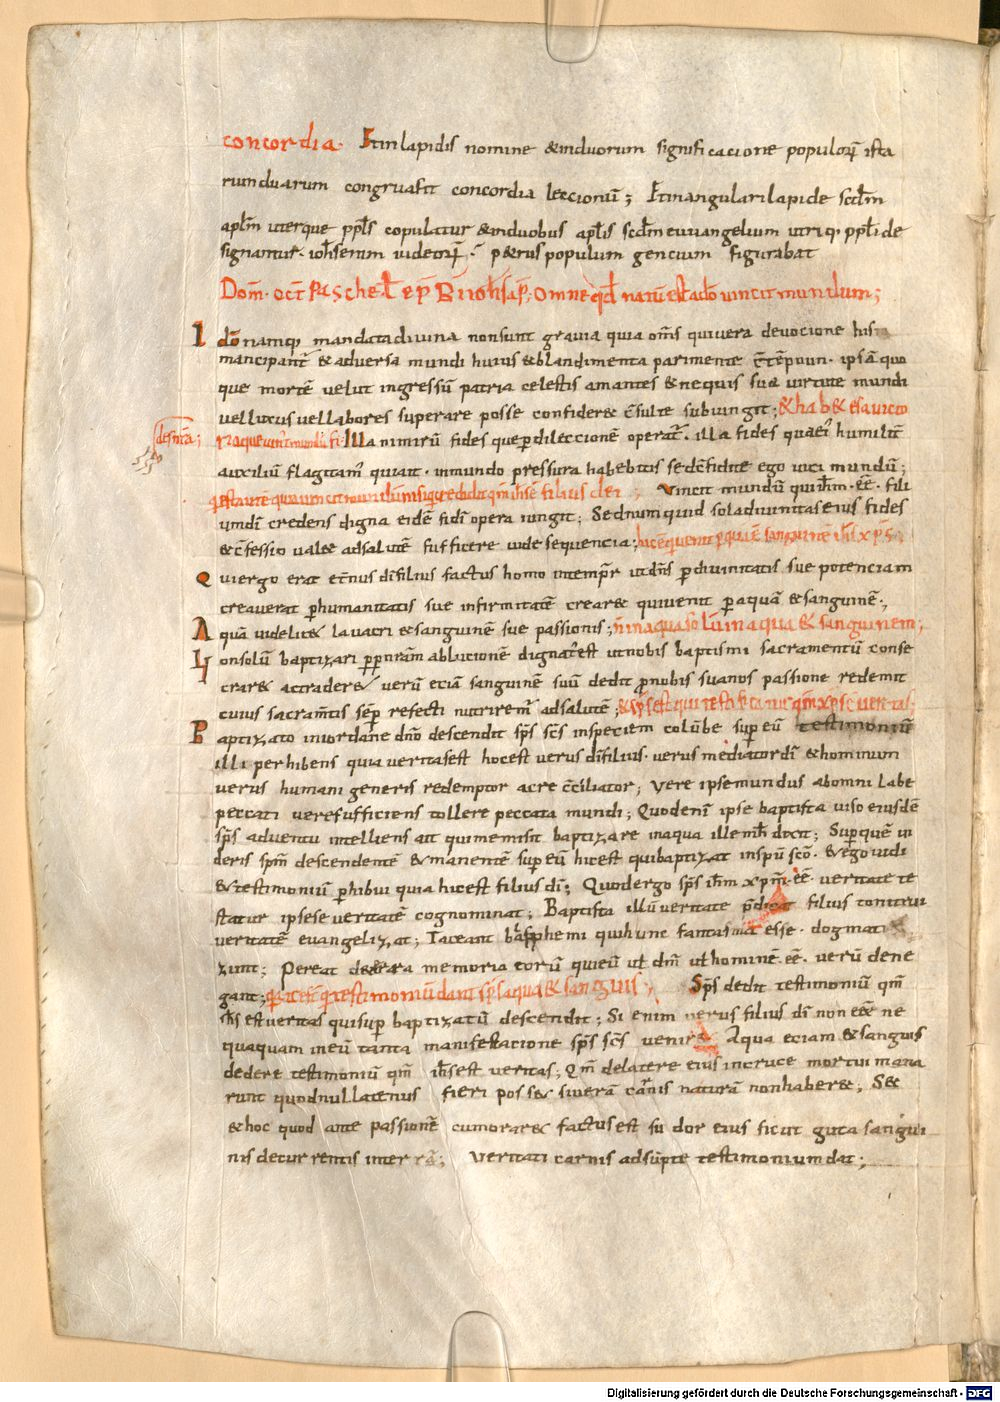 concordia. Et in lapidis nomine & in duorum significacione populorũ ista
rum duarum congruafit concordia leccionũ; Et in angulari lapide scd̃m
apl̃m uterque ppl̃s copulatur & in duobus apl̃is scd̃m euuangelium utriq. ppl̃i de
signantur. ioh̃s enim iudeorũ. p&rus populum gencium figurabat
Dom̃. oct̃ Pasche. l̃ ep̃ B̃i ioh̃s ap̃. Omne qd̃ natũ est ad̃o uincit mundum;
I dõ namq; mandata diuina non sunt grauia quia om̃s qui uera deuocione his
mancipant̃ & aduersa mundi huius & blandimenta pari mente c̃tẽpnun. ipsã quo
que mortẽ uelut ingressũ patria celestis amantes & nequis sua uirtute mundi
uel luxus uel labores superare posse confider& c̃sulte subiungit; & hab& es a uicto
des n̄ra;
ria que uinc̃ mundũ fi. Illa nimirũ fides que p dileccionẽ operat̃. illa fides qua ei humilit̃
auxiliũ flagitam̃ qui ait. in mundo pressura habebitis sed c̃fidite ego uici mundũ;
q̃ est autẽ qui uincit mundũ nisi qui credidit qm̃ ih̃s ẽ filius dei; Vincit mundũ qui ih̃m. ẽẽ. fili
um dĩ credens digna eidẽ fidĩ opera iungit; Sed numquid sola diuinitas eius fides
& c̃fessio uale& ad salutẽ sufficere uide sequencia; hic ẽ qui uenit per aquã & sanguinẽ ih̃s xp̃s;
Q ui ergo erat et̃nus dĩ filius factus homo in temp̃r ut dñs p diuinitatis sue potenciam
creauerat p humanitatis sue infirmitatẽ crear& qui uenit p aquã & sanguinẽ.;
A quã uidelic& lauacri & sanguinẽ sue passionis; ñ in aqua solũ in aqua & sanguinem;
N on solũ baptizari p̱p nr̃am ablucionẽ dignat̃ est ut nobis baptismi sacramentũ conse
crar& ac trader& uerũ eciã sanguinẽ suũ dedit p nobis sua nos passione redemit
cuius sacram̃tis sẽp refecti nutrirem̃ ad salutẽ; & sp̃s est qui testificatur qm̃ xp̃s ẽ ueritas;
B aptizato in iordane dño descendit sp̃s sc̃s in speciem colũbe sup eũ testimoniũ
illi perhibens quia ueritas est hoc est uerus dĩ filius. uerus mediator dĩ & hominum
uerus humani generis redemptor ac rec̃ciliator; Vere ipse mundus ab omni labe
peccati uere sufficiens tollere peccata mundi; Quod enĩ ipse baptista uiso eiusdẽ
sp̃s aduentu intelliens ait qui me misit baptizare in aqua ille mĩh dixit; Sup quẽ ui
deris sp̃m descendentẽ & manentẽ sup eũ hic est qui baptizat in spũ scõ. & ego uidi
& testimoniũ p hibui quia hic est filius dĩ; Quod ergo sp̃s ih̃m xp̃m. ẽẽ. ueritatẽ te
statur ipse se ueritatẽ cognominat; Baptista illũ ueritatẽ p̃dicat filius tonitrui
ueritatẽ euangelizat; Taceant blasphemi qui hunc fantasma esse. dogmati
zant; Pereat de terra memoria eorũ qui eũ ul̃ dm̃ ul̃ hominẽ. ẽẽ. uerũ dene
gant; qr̃ tres s̃ q̃ testimoniũ dant sp̃s aqua & sanguis; Sp̃s dedit testimoniũ qm̃
ih̃s est ueritas qui sup baptizatũ descendit; Si enim uerus filius dĩ non eẽ& ne
quaquam in eũ tanta manifestacione sp̃s sc̃s uenir&. Aqua eciam & sanguis
dedere testimoniũ qm̃ ih̃s est ueritas; Qm̃ de latere eius in cruce mortui mana
runt quod nullatenus fieri poss& si uerã carnis naturã non haber&; Set
& hoc quod ante passionẽ cum orar& factus est sudor eius sicut gutta sangui
nis decurrentis in terrã; Veritati carnis adsũpte testimonium dat;
Digitalisierung gefördert durch die Deutsche Forschungsgemeinschaft - DFG